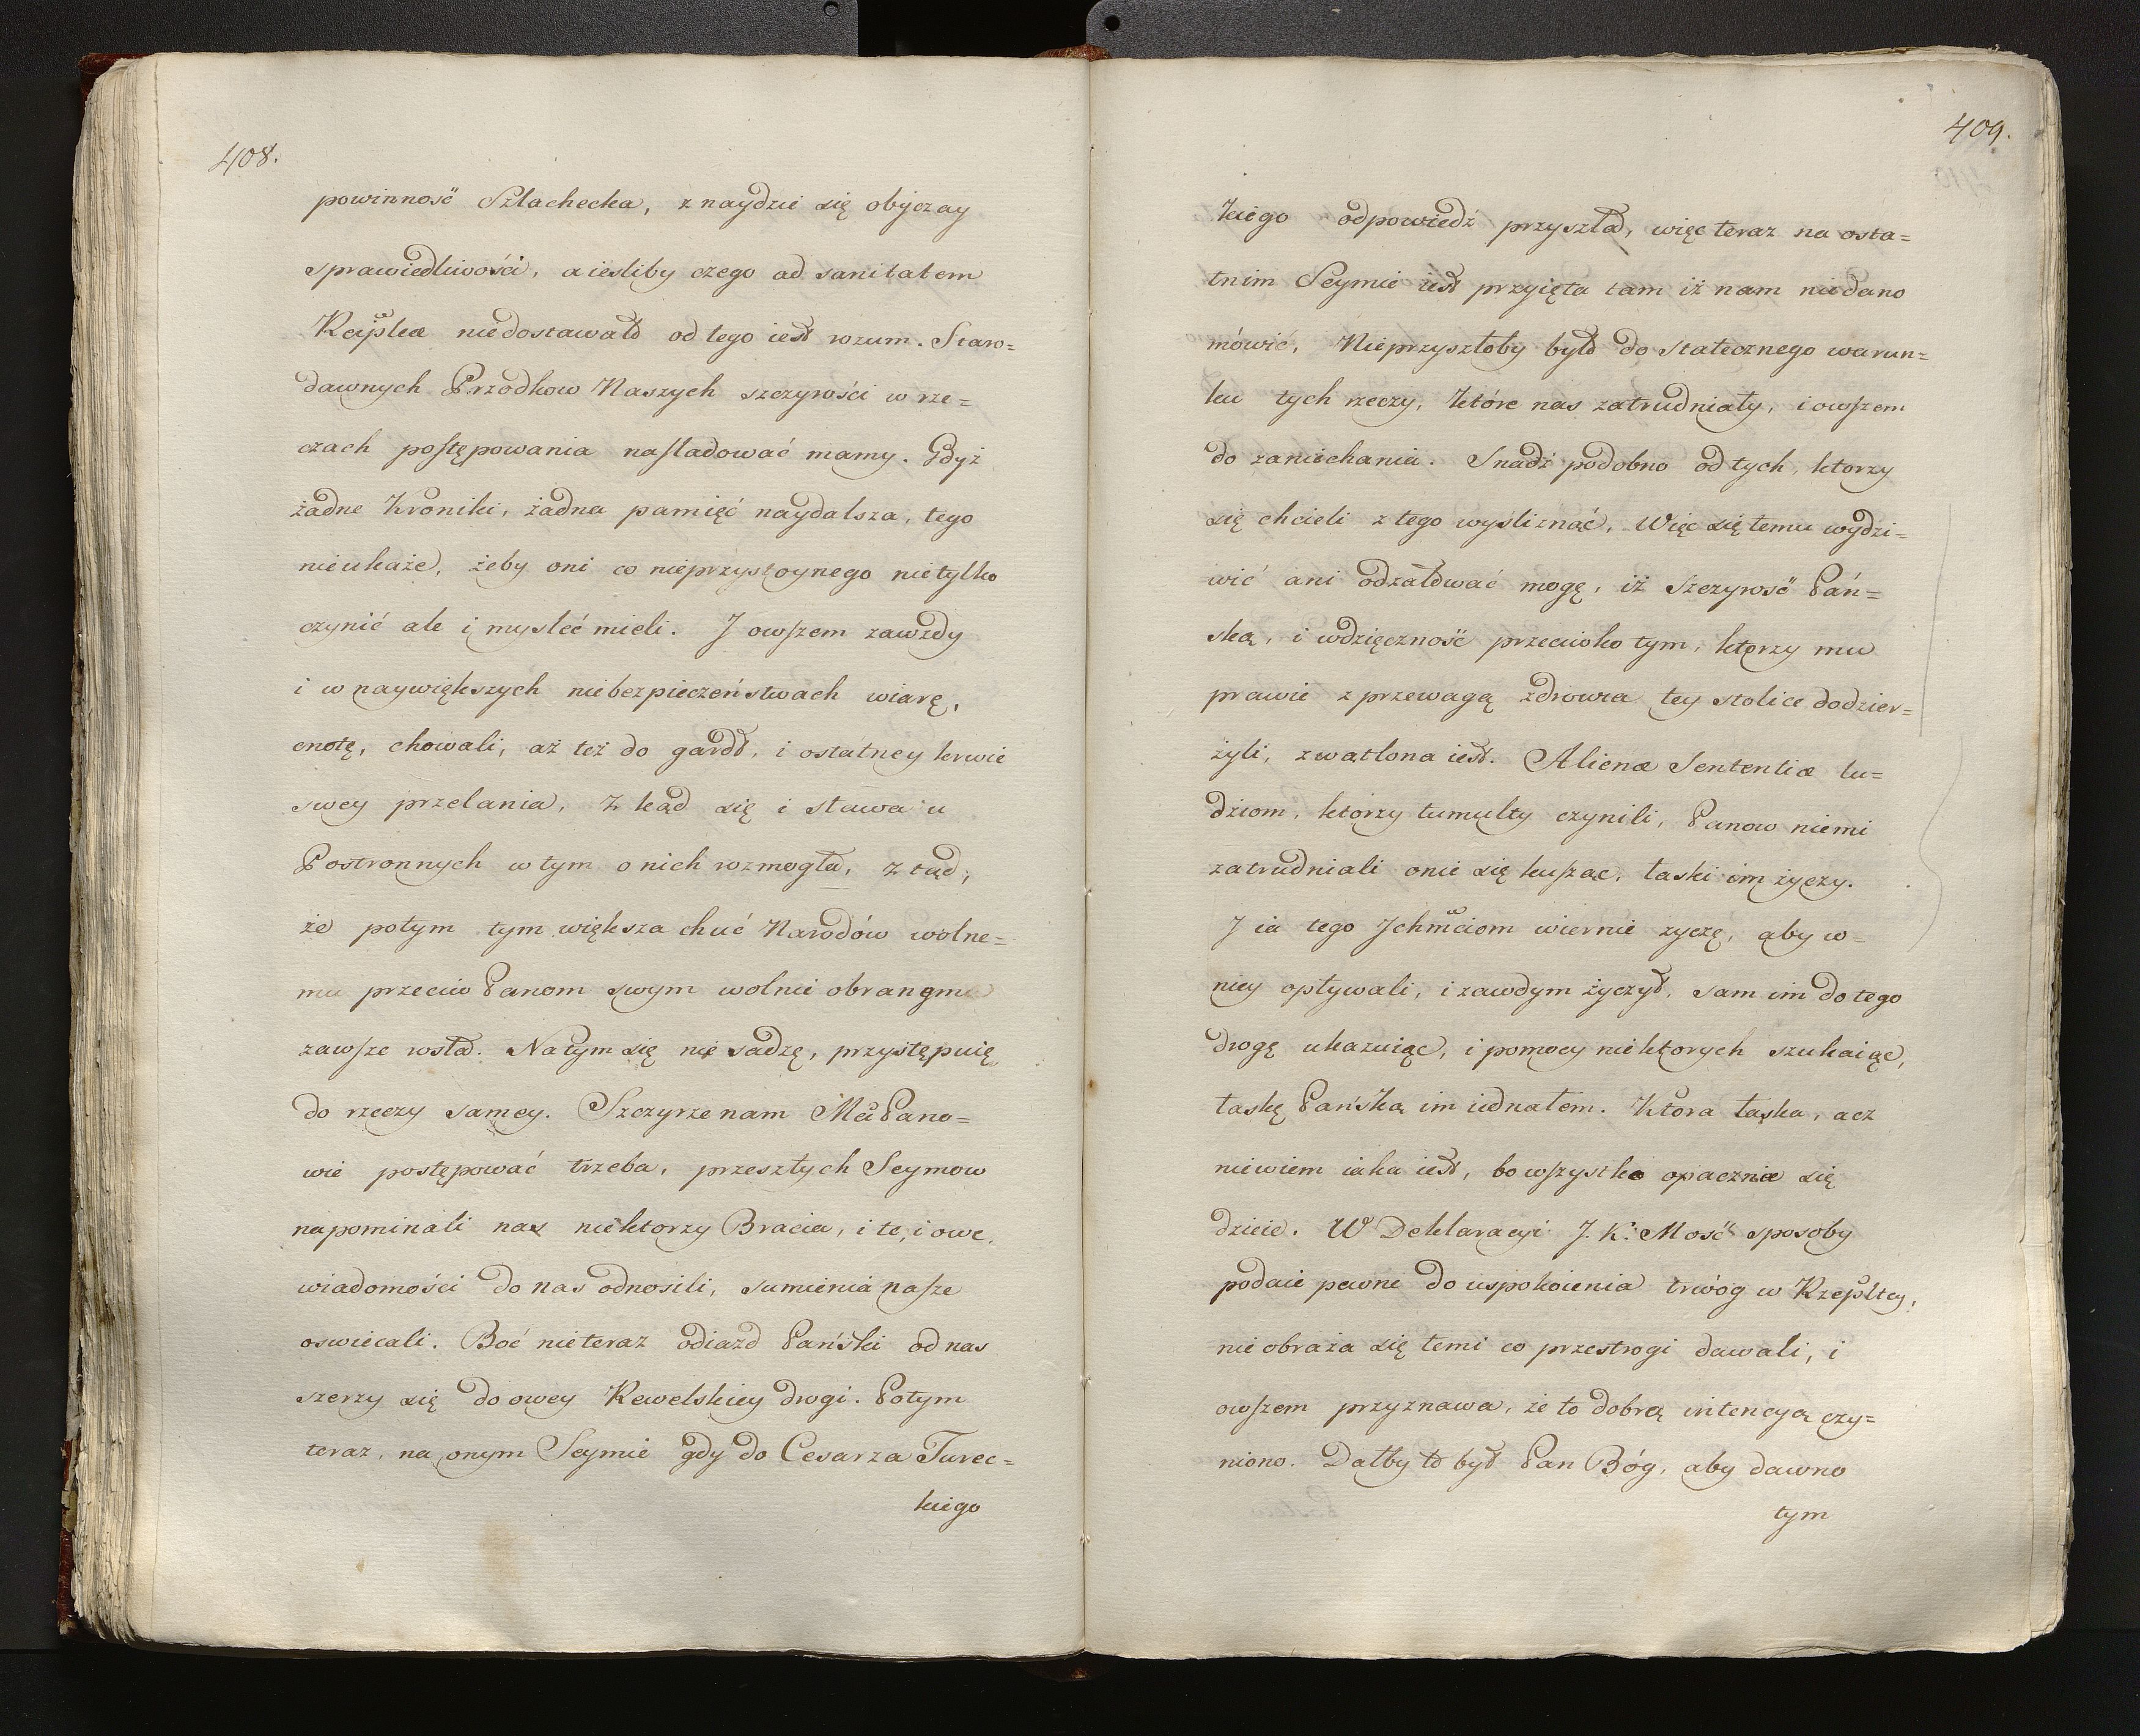 408.
powinność Szlachecka, znaydzie się obyczay
sprawiedliwości, a iesliby czego ad sanitatem
Reipcæ niedostawało od tego iest rozum. Staro=
dawnych Przodkow Naszych szczyrości w rze=
czach postępowania nasladować mamy. Gdyż
żadne Kroniki, żadna pamięć naydalsza, tego
nieukaże, żeby oni co nieprzystoynego nietylko
czynić ale i mysleć mieli. J owszem zawżdy
i w naywiększych niebezpieczeństwach wiarę,
cnotę, chowali, aż też do gardł, i ostatney krwie
swey przelania, Z kąd się i sława u
Postronnych w tym o nich rozmogła, z tąd,
że potym tym większa chuć Narodów wolne=
mu przeciw Panom swym wolnie obranym
zawsze rosła. Natym się nie sadzę, przystępuię
do rzeczy samey. Szczyrze nam Mci Pano=
wie postępować trzeba, przeszłych Seymow
napominali nas niektorzy Bracia, i te, i owe,
wiadomości do nas odnosili, sumienia nasze
oswiecali. Boć nieteraz odiazd Pański od nas
szerzy się do owey Rewelskiey drogi. Potym
teraz, na onym Seymie gdy do Cesarza Turec=
kiego
409.
kiego odpowiedź przyszła, więc teraz na osta=
tnim Seymie iest przyięta tam iż nam niedano
mówić, Nieprzyszłoby było do statecznego warun=
ku tych rzeczy, które nas zatrudniały, i owszem
do zaniechania. Snadź podobno od tych, ktorzy
się chcieli z tego wysliznąć, Więc się temu wydzi=
wić ani odżałować mogę, iż szczyrość Pań=
ską, i wdzięczność przeciwko tym, ktorzy mu
prawie z przewagą zdrowia tey stolice dodzier=
żyli, zwątlona iest. Alienæ Sententiæ lu=
dziom, ktorzy tumulty czynili, Panow niemi
zatrudniali onie się kusząc, łaski im życzy.
J ia tego Jchmciom wiernie zyczę, aby w=
niey opływali, i zawdym życzył, sam im do tego
drogę ukazuiąc, i pomocy niektorych szukaiąc,
łaskę Pańską im iednałem. Ktora łaska, acz
niewiem iaka iest, bo wszystko opacznie się
dzieie. W Deklaracyi J. K. Mość sposoby
podaie pewne do uspokoienia trwóg w Rzepltey,
nie obraża się temi co przestrogi dawali, i
owszem przyznawa, że to dobrą intencyą czy=
niono. Dałby to był Pan Bóg, aby dawno
tym